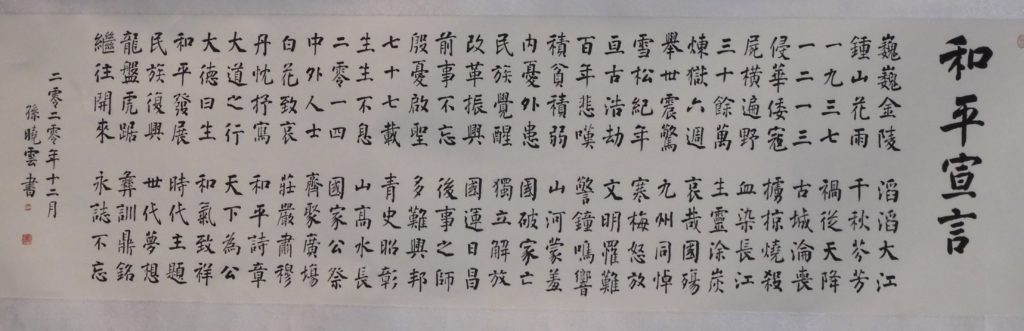 和平宣言
巍巍金陵 滔滔大江
鍾山花雨 千秋芬芳
一九三七 禍從天降
一二一三 古城淪喪
侵華倭寇 擄掠燒殺
屍橫遍野 血染長江
三十餘萬 生靈涂炭
煉獄六週 哀哉國殤
舉世震驚 九州同悼
雪松紀年 寒梅怒放
亘古浩劫 文明罹難
百年悲嘆 警鐘鳴響
積貧積弱 山河蒙羞
內憂外患 國破家亡
民族覺醒 獨立解放
改革振興 國運日昌
前事不忘 後事之師
殷憂啟聖 多難興邦
七十七載 青史昭彰
生生不息 山高水長
二零一四 國家公祭
中外人士 齊聚廣場
白花致哀 莊嚴肅穆
丹忱抒寫 和平詩章
大道之行 天下為公
大德曰生 和氣致祥
和平發展 時代主題
民族復興 世代夢想
龍盤虎踞 彝訓鼎銘
繼往開來 永誌不忘
二零二零年十二月
孫曉雲書